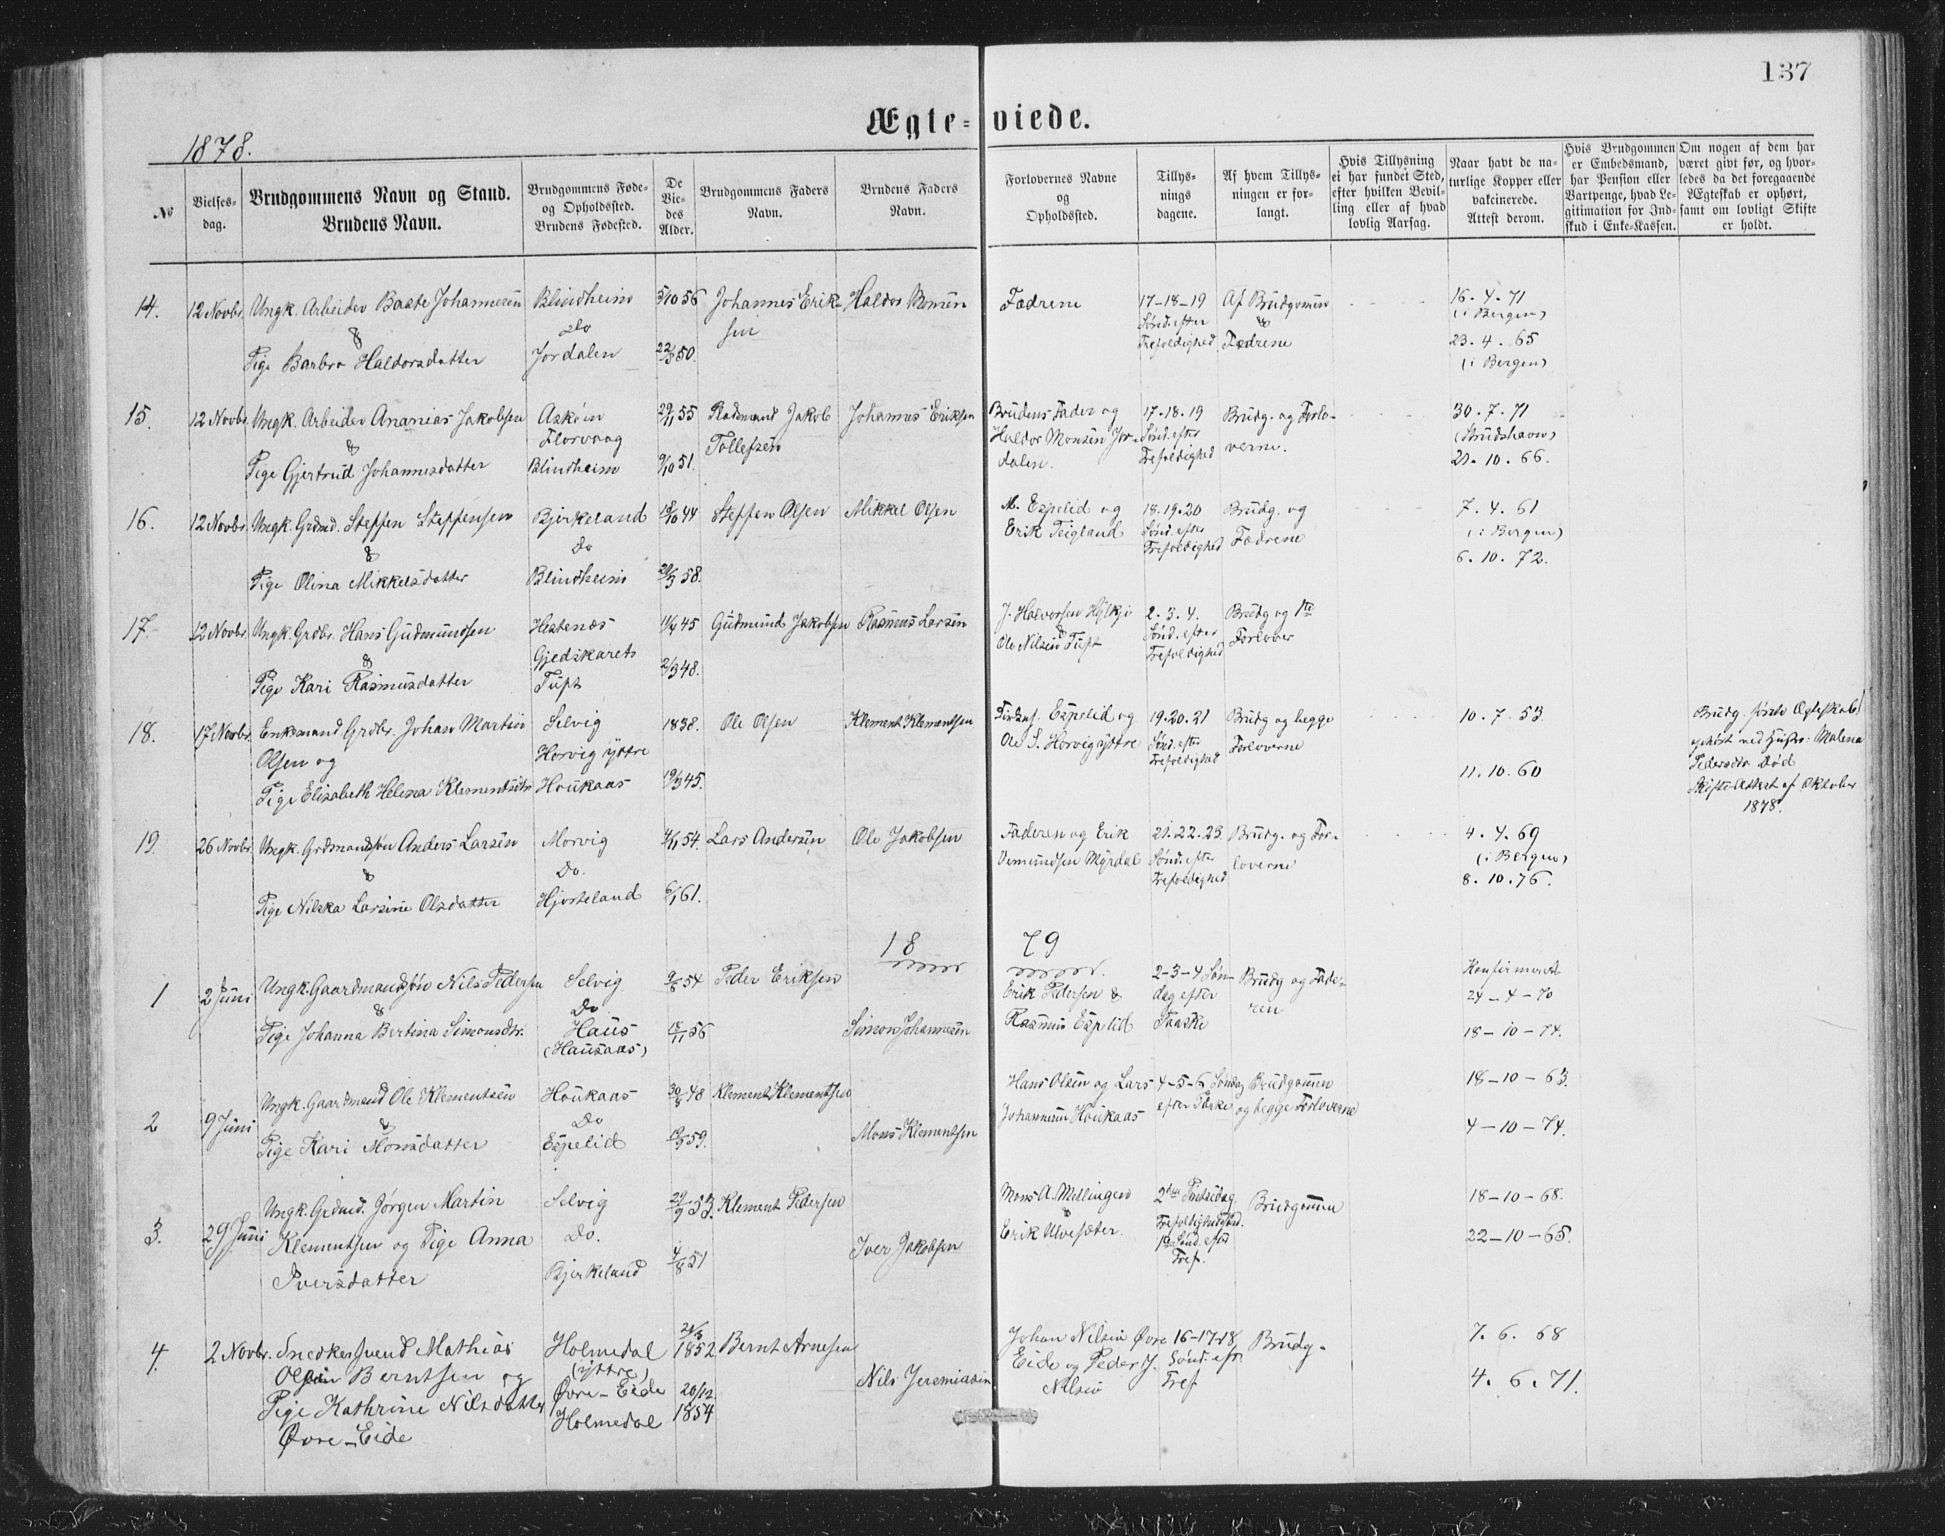 137
Ægte-viede.
1878.
No
Vielses-
dag.
Brudgommens Navn og Stand.
Brudens Navn.
Brudgommens Føde-
og Opholdssted.
Brudens Fødested.
De
Vie-
des
Alder.
Brudgommens Faders
Navn.
Brudens Faders
Navn.
Forlovernes Navne
og
Opholdssted.
Tillys-
nings
dagene.
Af hvem Tillys-
ningen er for-
langt.
Hvis Tillysning
ei har fundet Sted,
efter hvilken Bevil-
ling eller af hvad
lovlig Aarsag.
Naar havt de na-
turlige Kopper eller
vakcinerede.
Attest derom.
Hvis Brudgommen
er Embedsmand,
har Pension eller
Vartpenge, hvad Le-
gitimation for Ind-
skud i Enke-Kassen.
Om nogen af dem har
været givt før, og hvor-
ledes da det foregaaende
Ægteskab er ophørt,
samt om lovligt Skifte
er holdt.
14. 12 Novbr. Ungk. Arbeider Baste Johannesen Blindheim 5/10 56 Johannes Erik Haldor Monsen Fædrene 17-18-19 Af Brudgomen 16. 4. 71
& Do sen Sønd. efter & (i Bergen)
Pige Barbro Haldorsdatter Jordalen 22/3 50. Trefoldighed Fædrene 23. 4. 65
(i Bergen)
15. 12 Novbr. Ungk. Arbeider Ananias Jakobsen Askøen 29/11 55 Rasmund Jakob Johannes Eriksen Brudens Fader og 17.18.19 Brudg. og Forlo- 30. 7. 71
& Florvaag Tollefsen Haldor Monsen Jor- Sønd. efter verne. (Strudshavn)
Pige Gjertrud Johannesdatter Blindheim 9/10 51. dalen. Trefoldighed 21. 10. 66.
16. 12 Novbr. Ungk. Grdmd. Steffen Steffensen Bjerkeland 18/10 44 Steffen Olsen Mikkel Olsen M. Espelid og 18.19.20 Brudg. og 7. 4. 61
& Do Erik Teigland Sønd. efter Fædrene (i Bergen)
Pige Olina Mikkelsdatter Blindheim 29/3 58. Trefoldighed 6. 10. 72.
17. 12 Novbr. Ungk. Grdbr. Hans Gudmundsen Hestenæs 11/4 45 Gudmund Jakobsen Rasmus Larsen J. Halvorsen Hylkje 2. 3. 4. Brudg og 1ste
& Gjedskarets & Sønd. efter Forlover
Pige Kari Rasmusdatter Tuft 2/3 48. Ole Nilsen Tuft Trefoldighed
18. 17 Novbr. Enkemand Grdbr. Johan Martin Selvig 1838. Ole Olsen Klement Klementsen Espelid og 19.20.21 Brudg og begge 10. 7. 53. Brudg. første Ægteskab
Olsen og Horvig yttre Ole S. Horvig yttre Sønd. efter Forloverne ophøst ved Hustr: Malena
Pige Elisabeth Helena Klementsdtr. Houkaas 19/3 45. Trefoldighed 11. 10. 60 Pedersdtr Død
Skifte Attest af Oktober
1878.
19. 26 Novbr. Ungk. Grdmandsøn Anders Larsen Morvig 4/11 54. Lars Andersen Ole Jakobsen Faderen og Erik 21.22.23. Brudg. og For- 4. 7. 69
& Do. Vemundsen Myrdal Sønd. efter loverne (i Bergen)
Pige Nilska Larsine Olsdatter Hjorteland 6/1 61. Trefoldighed 8. 10. 76.
18 79
1 2 Juni Ungk. Gaardmandssøn Nils Pedersen Selvig 9/8 54 Peder Eriksen Erik Pedersen & 2-3-4 Søn- Brudg og Fade- Konfirmeret
& Do dag efter ren 24-4-70
Pige Johanna Bertina Simonsdtr. Haus 18/11 56 Simon Johannesen Rasmus Espelid Paaske 18-10-74.
(Hausaas)
2 9 Juni Ungk. Gaardmand Ole Klementsen Houkaas 30/8 48 Klement Klementsen Hans Olsen og Lars 4-5-6 Søndag Brudgommen 18-10-63.
& Do Johannesen Houkaas efter Paske og begge Forloverne
Pige Kari Monsdatter Espelid 19/9 59. Mons Klementsen 4-10-74.
3. 29 Juni Ungk. Grdmd. Jørgen Martin Selvig 29/9 53. Klement Pedersen Mons A. Mellingen 2den Pintsedag Brudgommen 18-10-68.
Klementsen og Pige Anna Do. & Trefoldighedsd.
Iversdatter Bjerkeland 4/8 51 Iver Jakobsen Erik Ulvesæter. 1ste Sønd. eftr 22-10-65.
Tref.
4. 2 Novbr. Snedkersvend Mathias Holmedal 21/3 1852 Bernt Arnesen Johan Nilsen Øvre 16-17-18 Brudg- 7. 6. 68
Olsen Berntsen og (yttre) Eide og Peder J. Sønd. eft.
Pige Kathrine Nilsdatter Øvre-Eide 20/12 1854 Nils Jeremiasen Nilsen Tref 4. 6. 71.
Øvre-Eide Holmedal